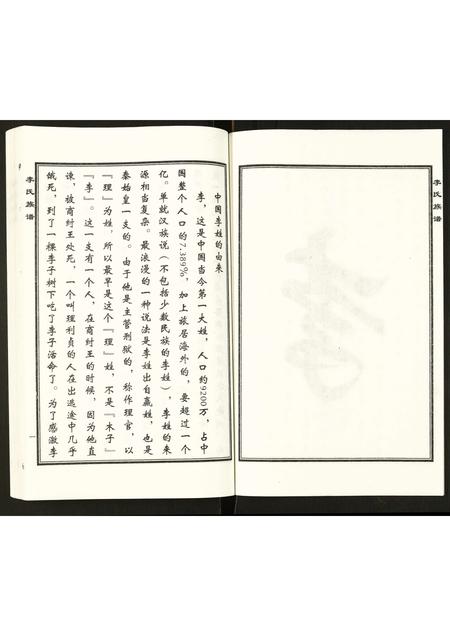 李氏族谱
中国李姓的由来
李，这是中国当今第一大姓，人口约9200万，占中
国整个人口的7.389%，加上旅居海外的，要超过一个
亿。单就汉族说（不包括少数民族的李姓），李姓的来
源相当复杂。最浪漫的一种说法是李姓出自嬴姓，也是
秦始皇一支的。由于他是主管刑狱的，称作理官，以
『理』为姓，所以最早是这个『理』姓，不是『木子』
『李』。这一支有一个人，在商纣王的时候，因为他直
谏，被商纣王处死，一个叫理利贞的人在出逃途中几乎
饿死，到了一棵李子树下吃了李子活命了。为了感激李
李氏族谱
一